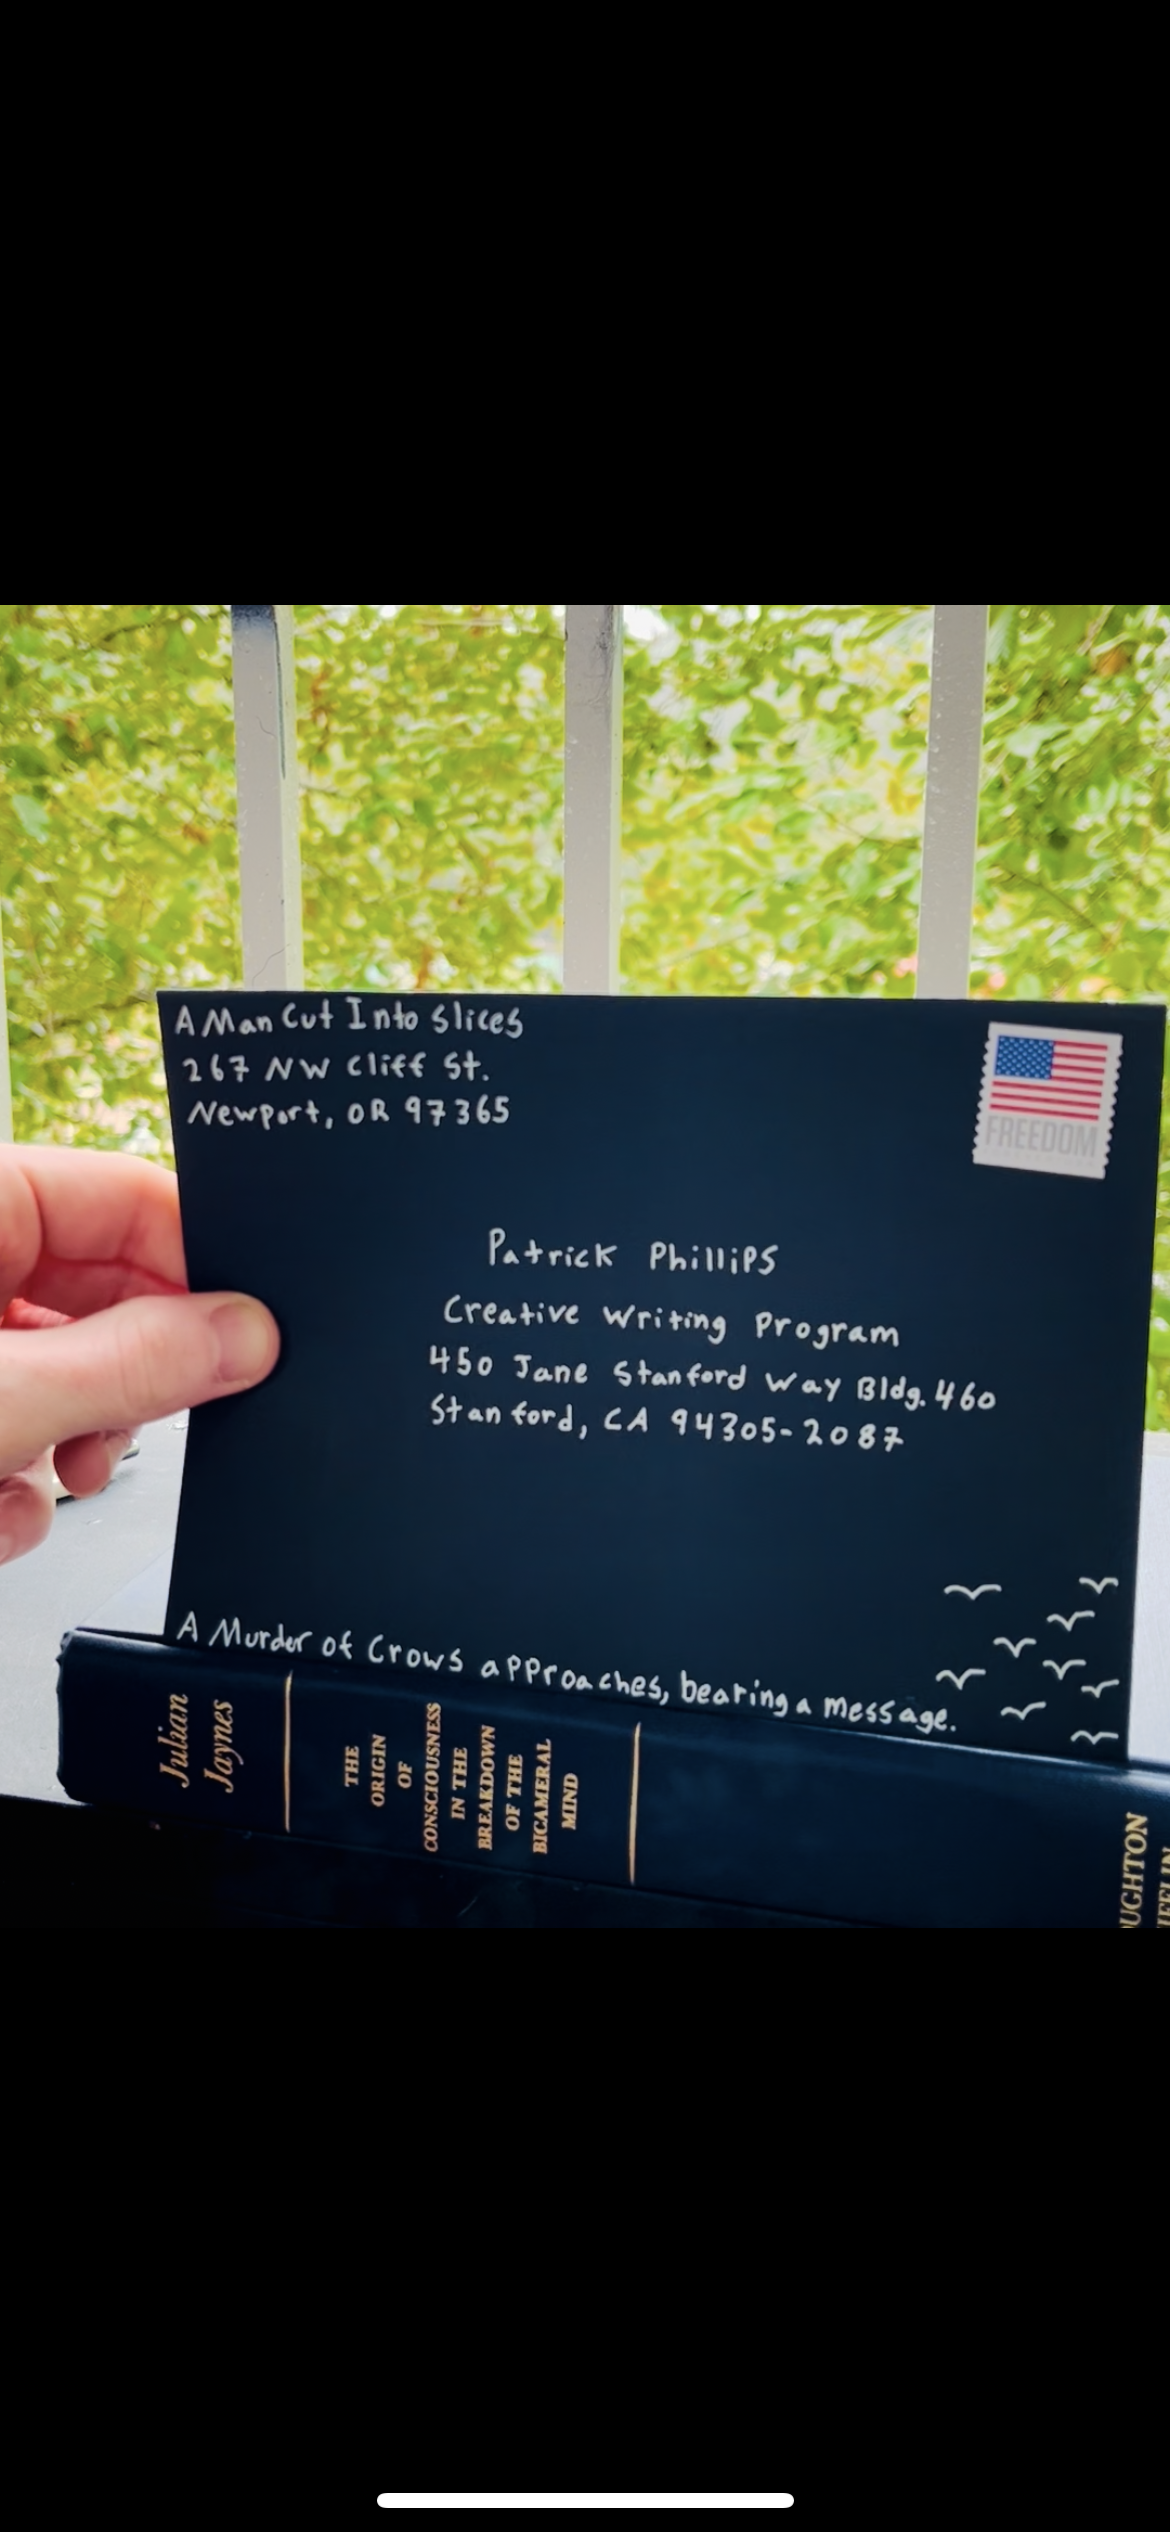 A Man Cut Into Slices
267 NW Cliff St.
Newport, OR 97365
FREEDOM
Patrick Phillips
Creative Writing Program
450 Jane Stanford Way Bldg. 460
Stanford, CA 94305-2087
A Murder of Crows approaches, bearing a message.
Julian
Jaynes
THE
ORIGIN
OF
CONSCIOUSNESS
IN THE
BREAKDOWN
OF THE
BICAMERAL
MIND